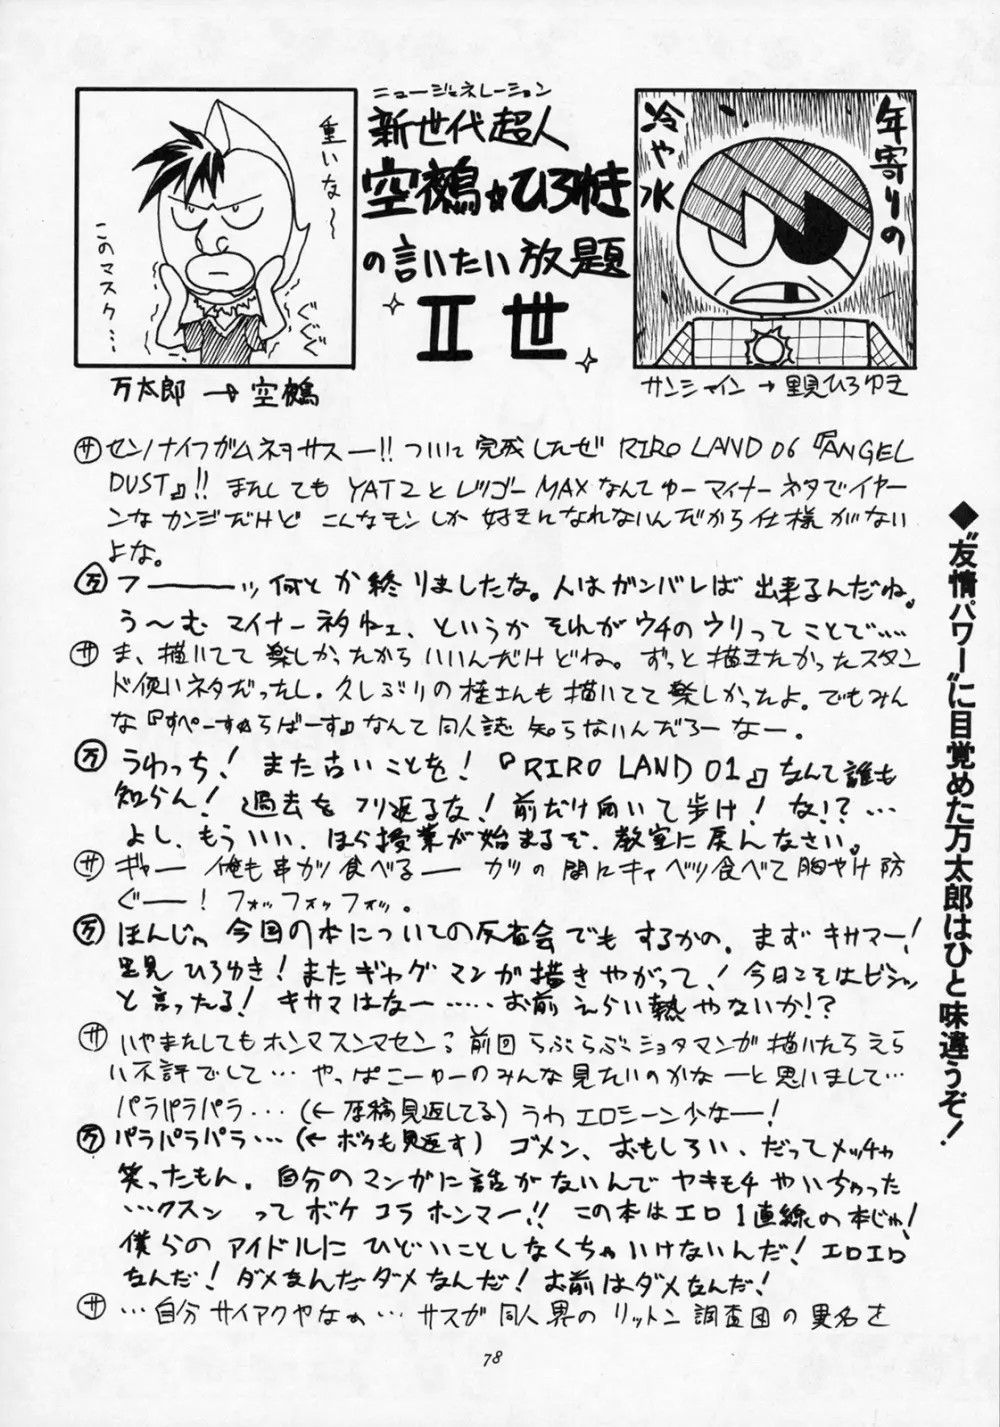 ニュージェネレーション
新世代超人
空鵺☆ひろゆき
の言いたい放題
II世
重いな〜
このマスク…
ぐぐぐ
万太郎→空鵺
年寄りの
冷や水
サンシャイン→里見ひろゆき
◆“友情パワー”に目覚めた万太郎はひと味違うぞ!
サ センノナイフガムネヲサスー!! ついに完成したぜ RIRO LAND 06『ANGEL
DUST』!! またしても YAT2とレツゴーMAXなんてゆーマイナーネタでイヤー
ンなカンジだけど こんなモンしか好きになれないんだから仕様がない
よな。
万 フーーーッ何とか終りましたな。人はガンバレば出来るんだね。
う〜むマイナーネタねェ、というかそれがウチのウリってことで……
サ ま、描いてて楽しかったからいいんだけどね。ずっと描きたかったスタン
ド使いネタだったし。久しぶりの桂さんも描いてて楽しかったよ。でもみん
な『すぺーす☆らばーす』なんて同人誌知らないんだろーなー。
万 うわっち!また古いことを!『RIRO LAND 01』なんて誰も
知らん!過去をフリ返るな!前だけ向いて歩け!な!?…
よし、もういい、ほら授業が始まるぞ、教室に戻んなさい。
サ ギャー 俺も串カツ食べるー カツの間にキャベツ食べて胸やけ防
ぐー!フォッフォッフォッ。
万 ほんじゃ今回の本についての反省会でもするかの。まずキサマー!
里見ひろゆき!またギャグマンガ描きやがって!今日こそはビシッ
と言ったる!キサマはなー……お前えらい熱やないか!?
サ いやまたしてもホンマスンマセン。前回らぶらぶショタマンガ描いたらえら
い不評でして…やっぱこーゆーのみんな見たいのかなーと思いまして…
パラパラパラ…(←原稿見返してる)うわエロシーン少なー!
万 パラパラパラ…(←ボクも見返す)ゴメン、おもしろい、だってメッチャ
笑ったもん。自分のマンガに話がないんでヤキモチやいちゃった
…クスン ってボケコラホンマー!! この本はエロ1直線の本じゃ!
僕らのアイドルにひどいことしなくちゃいけないんだ!エロエロ
なんだ!ダメなんだダメなんだ!お前はダメなんだ!
サ …自分サイアクやなぁ…サスガ同人界のリットン調査団の異名を
78